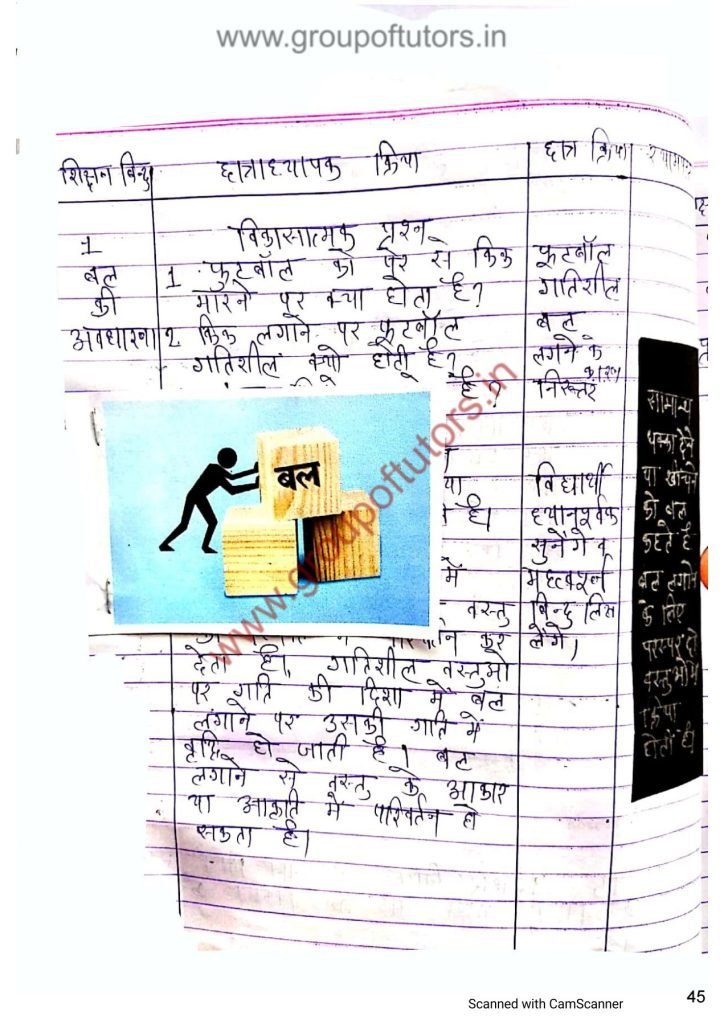 www.groupoftutors.in
शिक्षन बिन्दु
छात्राध्यापक क्रिया
छात्र क्रिया
1
बल
की
अवधारना
विकासात्मक प्रश्न
1. फुटबॉल को पैर से किक
मारने पर क्या होता है?
2. किक लगाने पर फुटबॉल
गतिशील क्यो होती है?
है?
है।
में
वस्तु
कर
देता है। गतिशील वस्तुओ
पर गति की दिशा में बल
लगाने पर उसकी गति में
वृद्धि हो जाती है। बल
लगाने से वस्तु के आकार
या आकृति में परिवर्तन हो
सकता है।
फूटबॉल
गतिशील
बल
लगने के
कारण
निरूत्तर
विद्यार्थी
ध्यानपूर्वक
सुनेंगे व
महत्वपूर्न
बिन्दु लिख
लेंगे।
सामान्य
धक्का देने
या खींचने
को बल
कहते है
बल लगाने
के लिए
परस्पर दो
वस्तुओमे
क्रिया
होती है।
बल
www.groupoftutors.in
45
Scanned with CamScanner